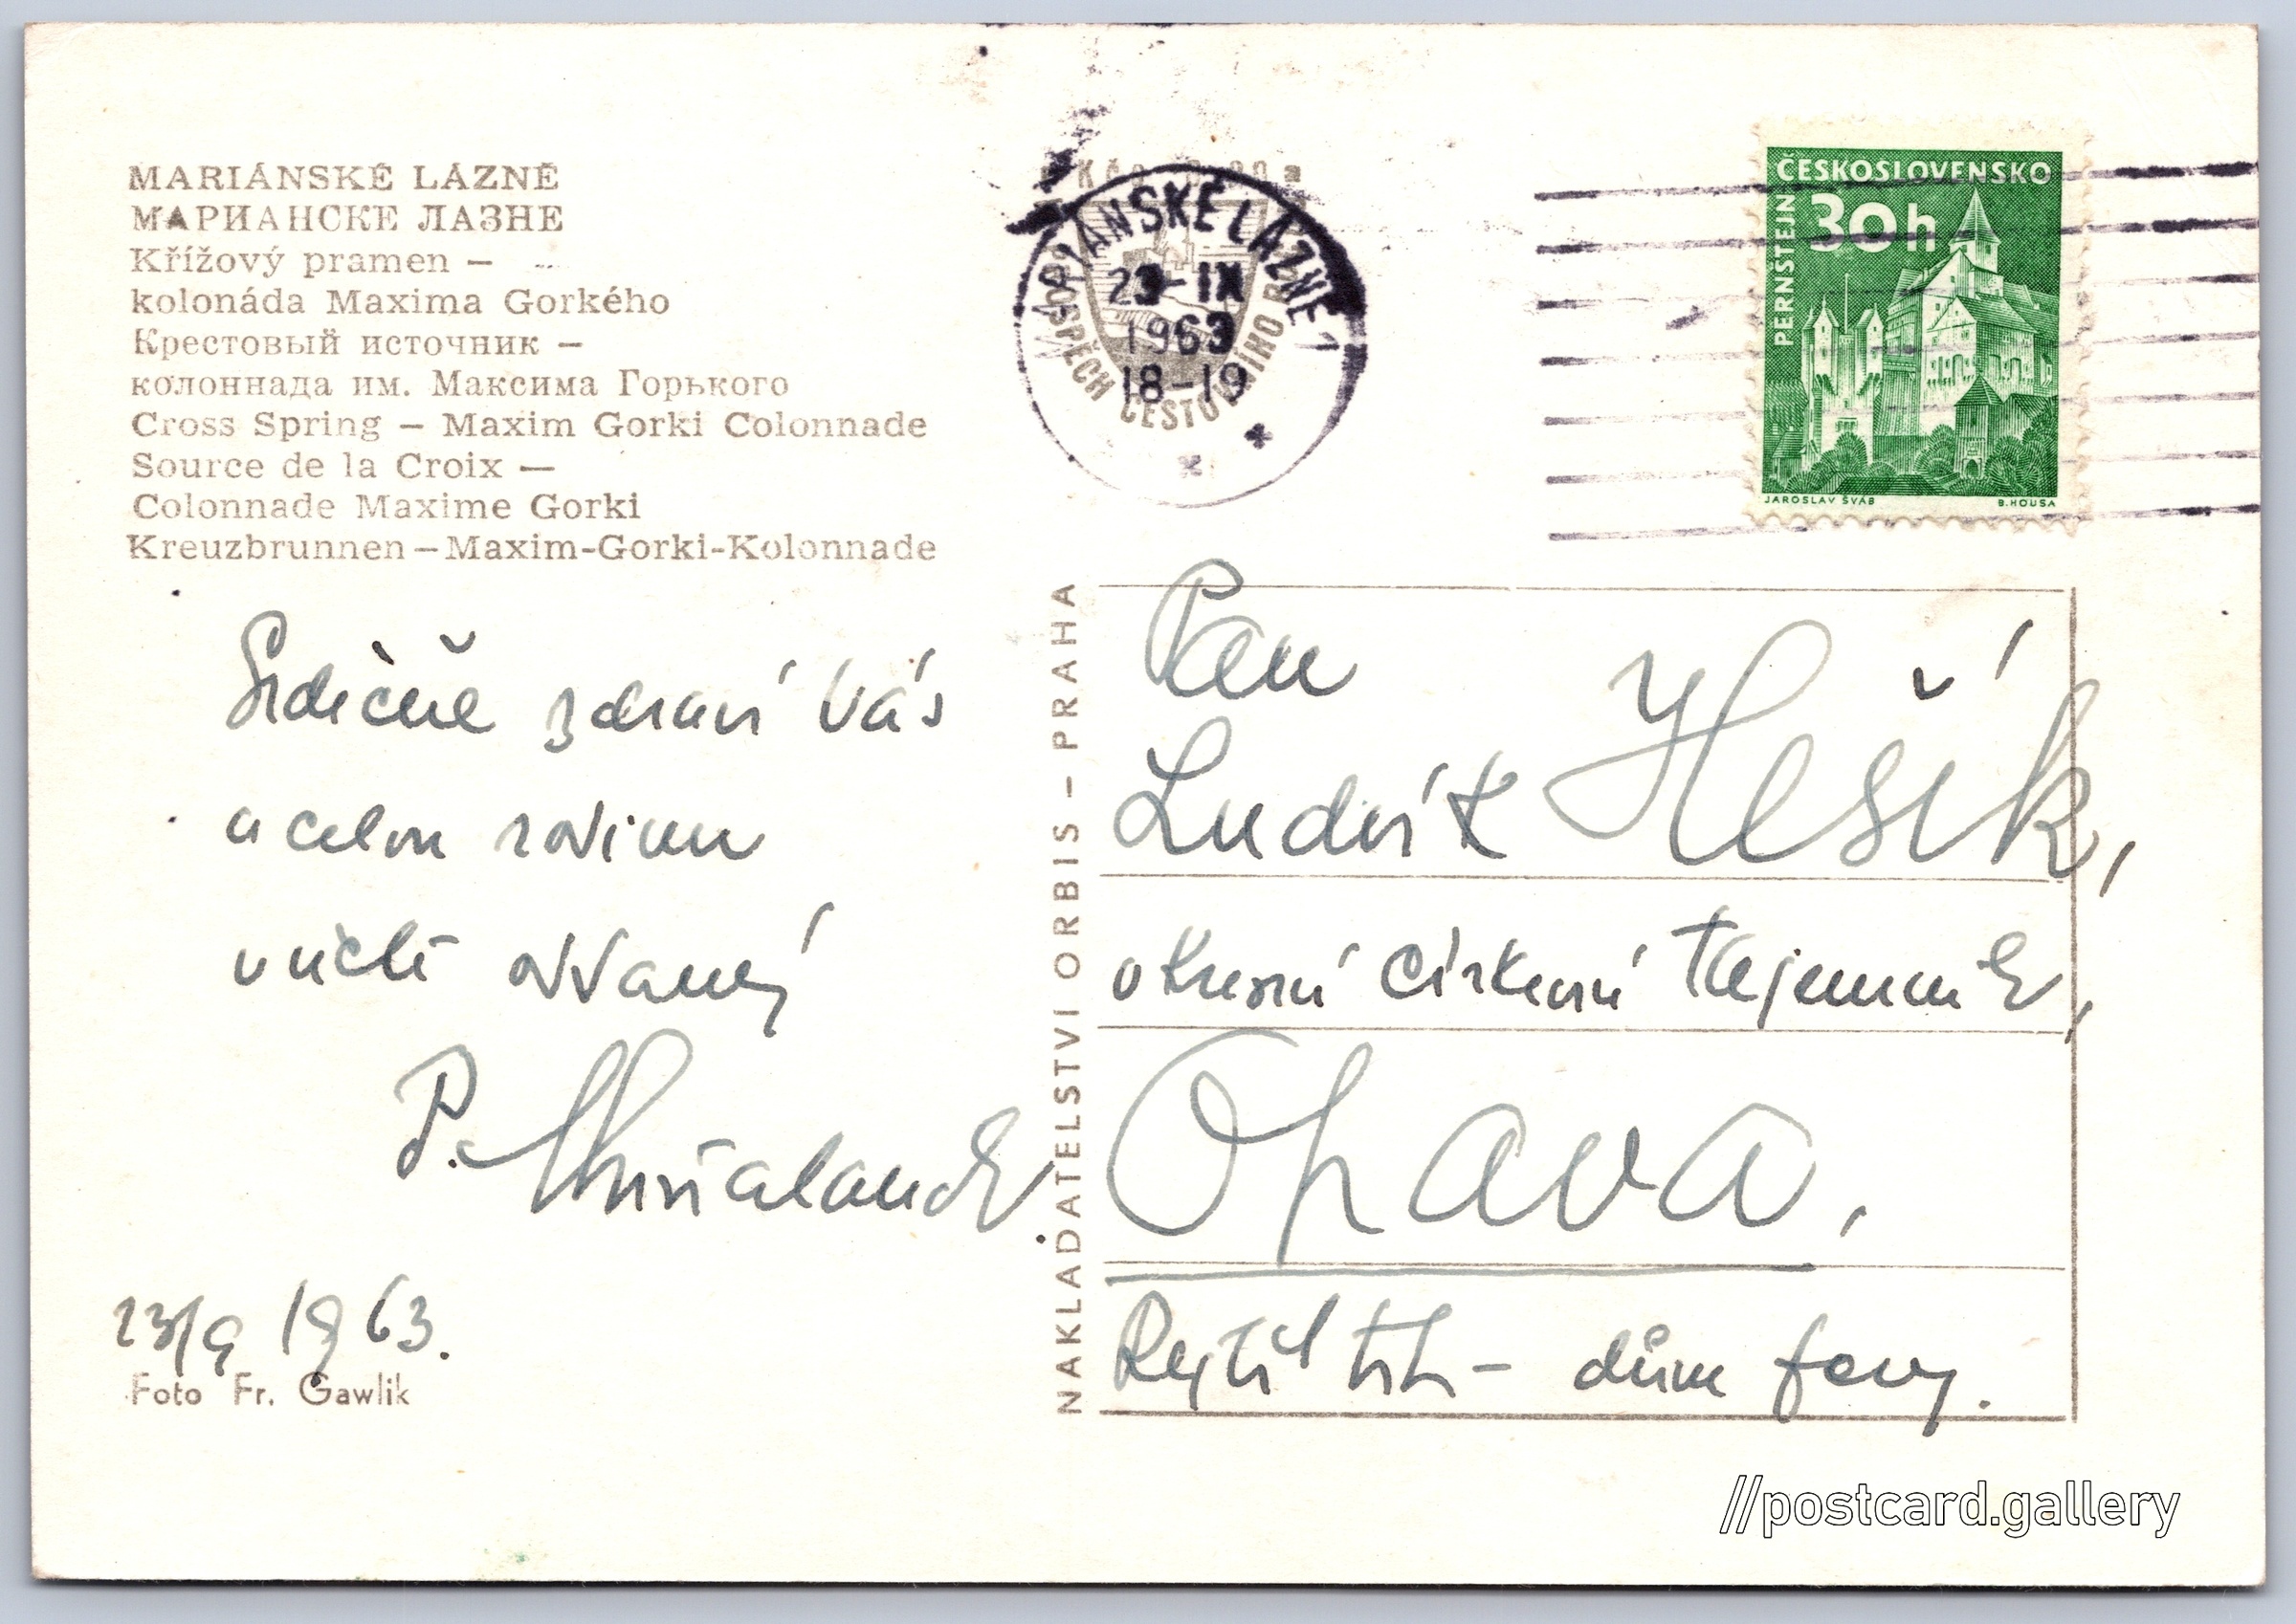 MARIÁNSKÉ LÁZNĚ
МАРИАНСКЕ ЛАЗНЕ
Křížový pramen –
kolonáda Maxima Gorkého
Крестовый источник –
колоннада им. Максима Горького
Cross Spring – Maxim Gorki Colonnade
Source de la Croix —
Colonnade Maxime Gorki
Kreuzbrunnen – Maxim-Gorki-Kolonnade
Srdečně zdraví Vás
a celou rodinu
v úctě oddaný
P.
23/9 1963.
Foto Fr. Gawlik
NAKLADATELSTVÍ ORBIS – PRAHA
MARIÁNSKÉ LÁZNĚ 1
23-IX
1963
18-19
ČESKOSLOVENSKO
30h
PERNŠTEJN
JAROSLAV ŠVÁB
B. HOUSA
Pan
Ludvík Hešík,
okresní církevní tajemník,
Opava,
trh – dům
//postcard.gallery